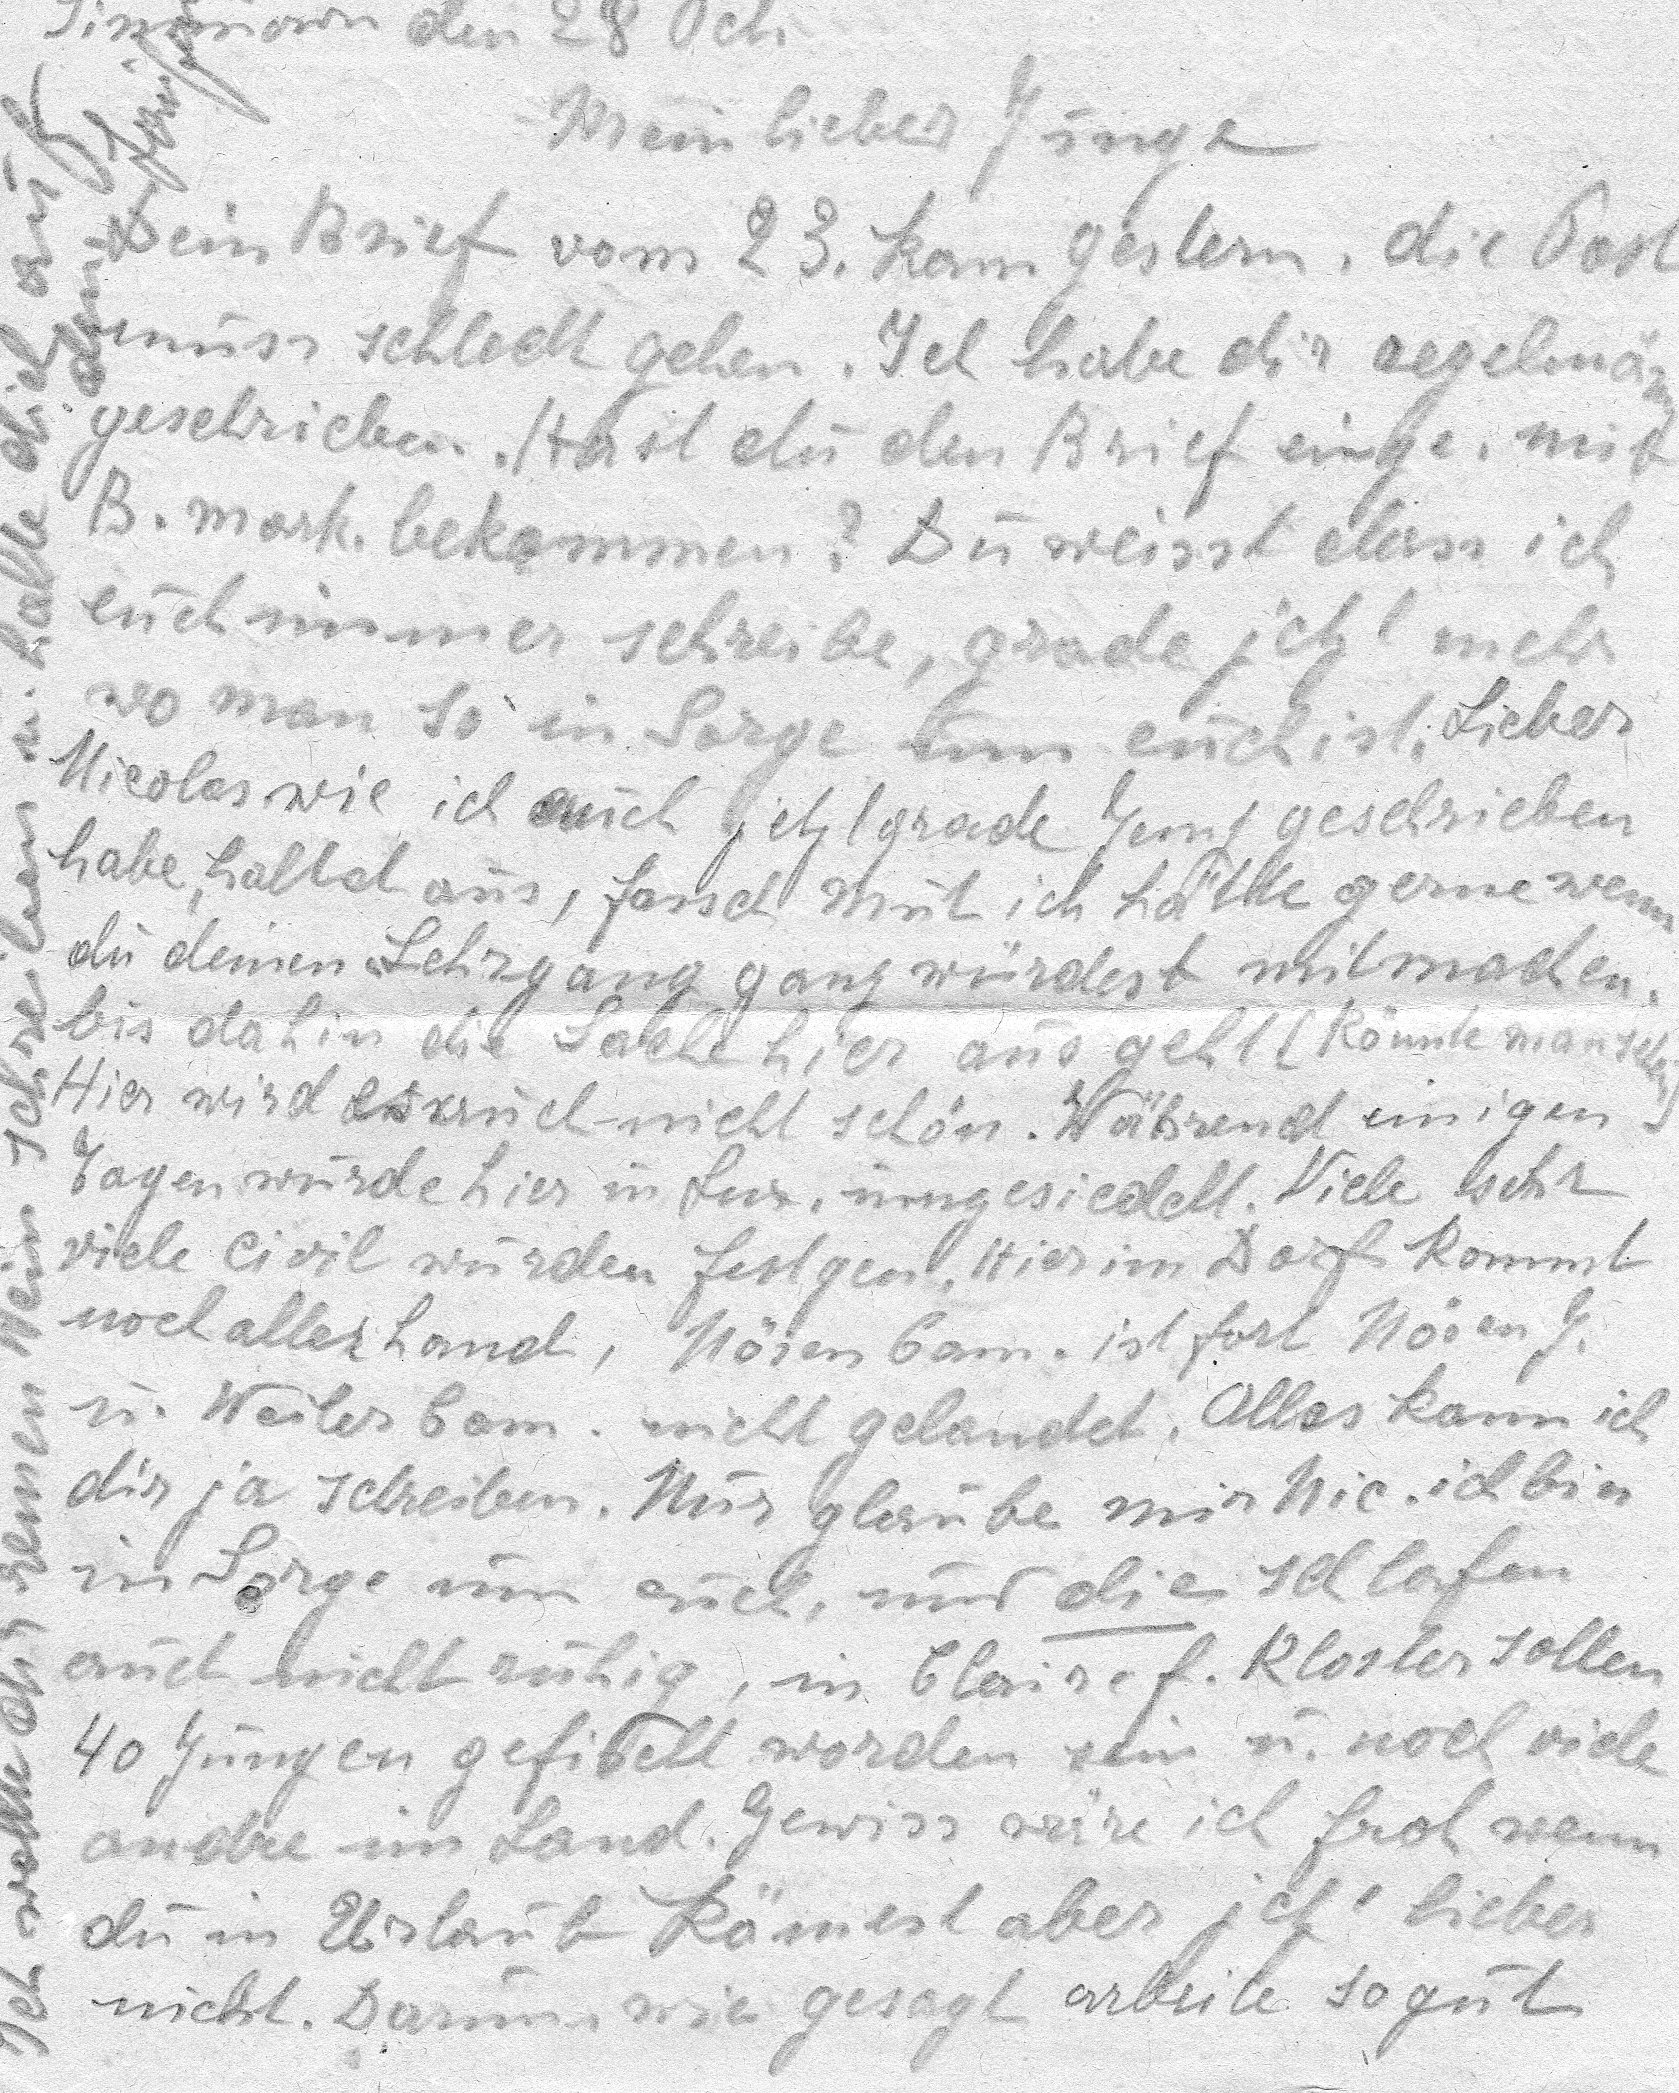 den 28 Oct.
Mein lieber Junge
Dein Brief vom 23. kam gestern, die Post
muss schlecht gehen. Ich habe dir regelmäs
geschrieben. Hast du den Brief einge. mit
B. mark. bekommen? Du weisst dass ich
euch immer schreibe, grade jetzt mehr
wo man so in Sorge um euch ist. Lieber
Nicolas wie ich auch jetzt grade Jemp geschrieben
habe, haltet aus, fasst Mut ich hätte gerne wenn
du deinen Lehrgang ganz würdest mitmachen.
bis dahin die Sache hier aus geht könnte man sehn
Hier wird es auch nicht schön. Während einigen
Tagen wurde hier in Lux. umgesiedelt. Viele sehr
viele Civil wurden festgen. Hier im Dorf kommt
noch allerhand, Nösen Cam. ist fort Nösen J.
u. Weiler Cam. nicht gelandet. Alles kann ich
dir ja schreiben. Nur glaube mir Nic. ich bin
in Sorge um euch, und die schlafen
auch nicht ruhig, in Clairef. Kloster sollen
40 Jungen gefidelt worden sein u. noch viele
andre im Land. Gewiss wäre ich froh wenn
du in Urlaub kämest aber jetzt lieber
nicht. Darum wie gesagt arbeite so gut
Ich wollte dir reinen Wein schenken u. halte dich an